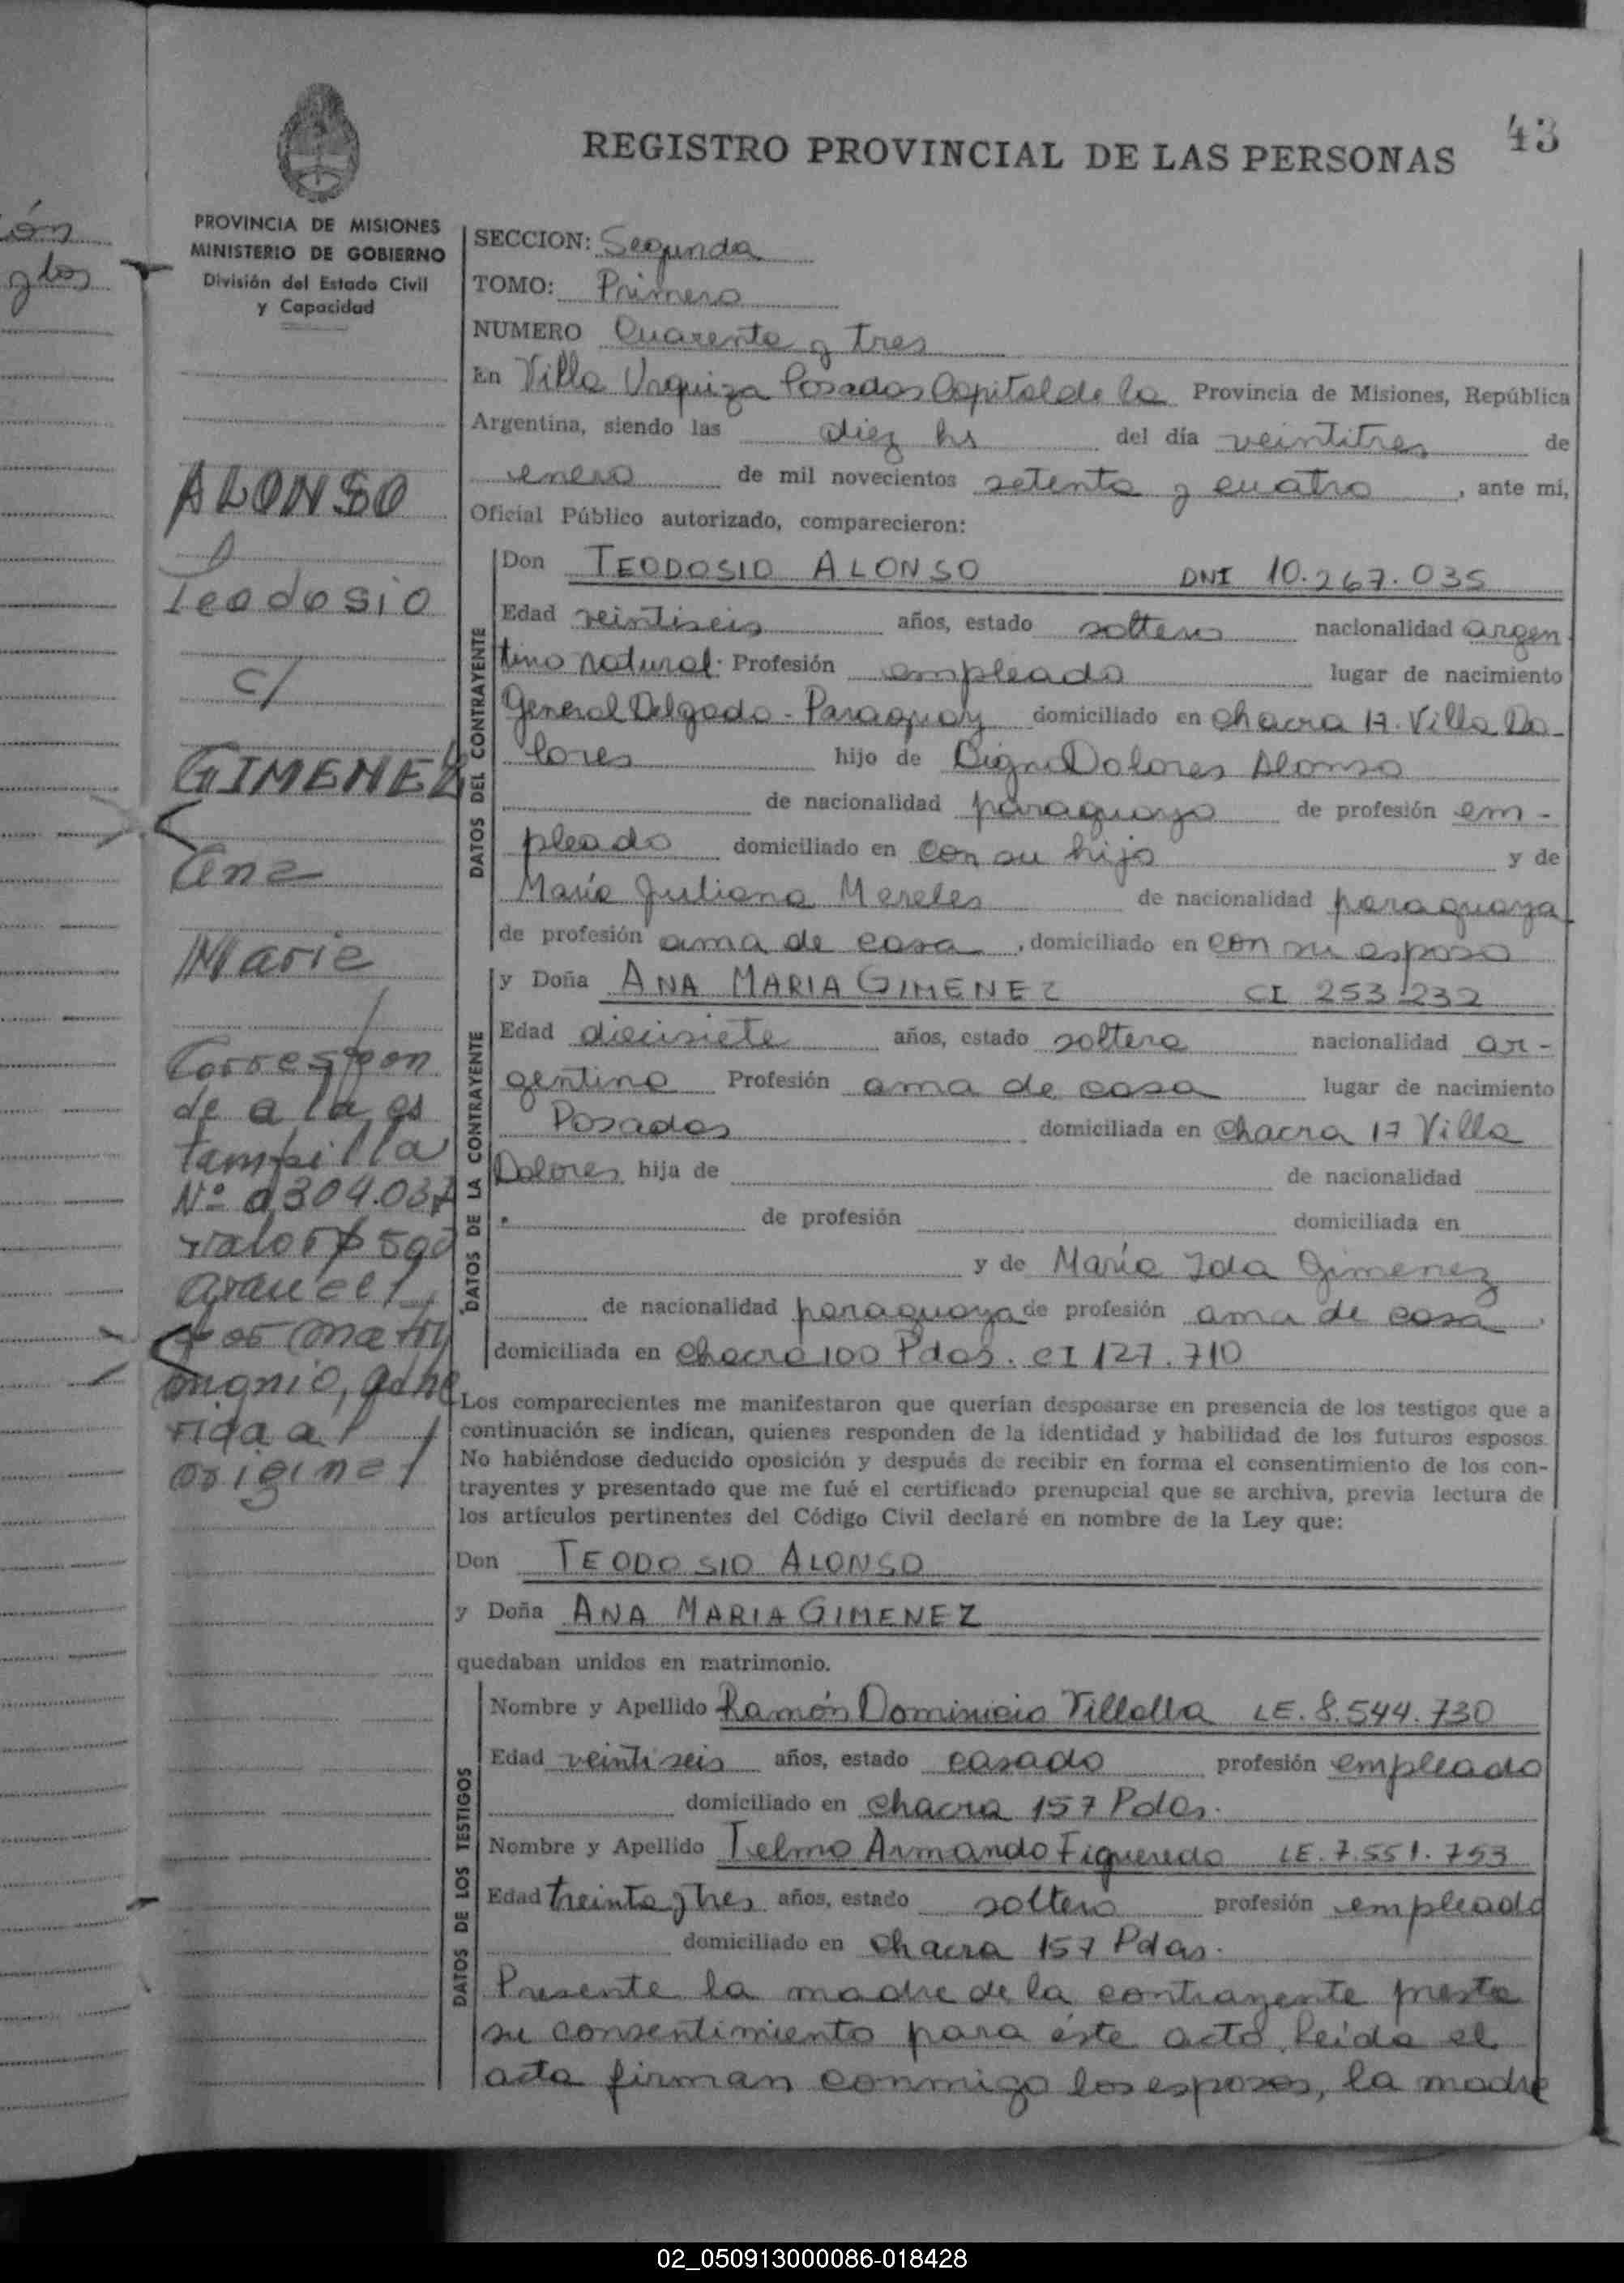 43
REGISTRO PROVINCIAL DE LAS PERSONAS
PROVINCIA DE MISIONES
MINISTERIO DE GOBIERNO
División del Estado Civil
y Capacidad
ALONSO
Teodosio
c/
GIMENEZ
Ana
Maria
Correspon
de a la es
tampilla
Nº 0304.037
valor $ 500
arancel
matri
monio, adhe
rida al
original
SECCION: Segunda
TOMO: Primero
NUMERO Cuarenta y tres
En Villa Urquiza Posadas Capital de la Provincia de Misiones, República
Argentina, siendo las diez hs del día veintitres de
enero de mil novecientos setenta y cuatro, ante mi,
Oficial Público autorizado, comparecieron:
DATOS DEL CONTRAYENTE
Don TEODOSIO ALONSO DNI 10.267.035
Edad veintiseis años, estado soltero nacionalidad argen
tino natural. Profesión empleado lugar de nacimiento
General Delgado - Paraguay domiciliado en chacra 17. Villa Do
lores hijo de Digno Dolores Alonso
de nacionalidad paraguayo de profesión em-
pleado domiciliado en con su hijo y de
María Juliana Mereles de nacionalidad paraguaya
de profesión ama de casa, domiciliado en con su esposo
DATOS DE LA CONTRAYENTE
y Doña ANA MARIA GIMENEZ CI 253.232
Edad diecisiete años, estado soltera nacionalidad ar-
gentina Profesión ama de casa lugar de nacimiento
Posadas domiciliada en chacra 17 Villa
Dolores hija de de nacionalidad
de profesión domiciliada en
y de María Ida Gimenez
de nacionalidad paraguaya de profesión ama de casa,
domiciliada en chacra 100 Pdas. CI 127.710
Los comparecientes me manifestaron que querían desposarse en presencia de los testigos que a
continuación se indican, quienes responden de la identidad y habilidad de los futuros esposos.
No habiéndose deducido oposición y después de recibir en forma el consentimiento de los con-
trayentes y presentado que me fué el certificado prenupcial que se archiva, previa lectura de
los artículos pertinentes del Código Civil declaré en nombre de la Ley que:
Don TEODOSIO ALONSO
y Doña ANA MARIA GIMENEZ
quedaban unidos en matrimonio.
DATOS DE LOS TESTIGOS
Nombre y Apellido Ramón Dominicio Villalba LE. 8.544.730
Edad veintiseis años, estado casado profesión empleado
domiciliado en chacra 157 Pdas.
Nombre y Apellido Telmo Armando Figueredo LE. 7.551.753
Edad treinta y tres años, estado soltero profesión empleado
domiciliado en chacra 157 Pdas.
Presente la madre de la contrayente presta
su consentimiento para éste acto, leída el
acta firman conmigo los esposos, la madre
02_050913000086-018428